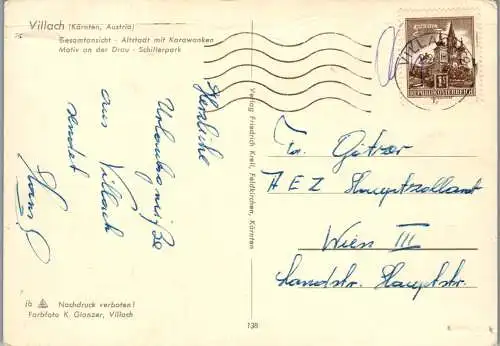 Villach (Kärnten, Austria)
Gesamtansicht - Altstadt mit Karawanken
Motiv an der Drau - Schillerpark
Herzliche
Urlaubsgrüße
aus Villach
sendet
Hans
ib Nachdruck verboten!
Farbfoto K. Glanzer, Villach
Verlag Friedrich Krall, Feldkirchen, Kärnten
138
VILLACH
REPUBLIK ÖSTERREICH
Hauptzollamt
Wien III
Landstr. Hauptstr.